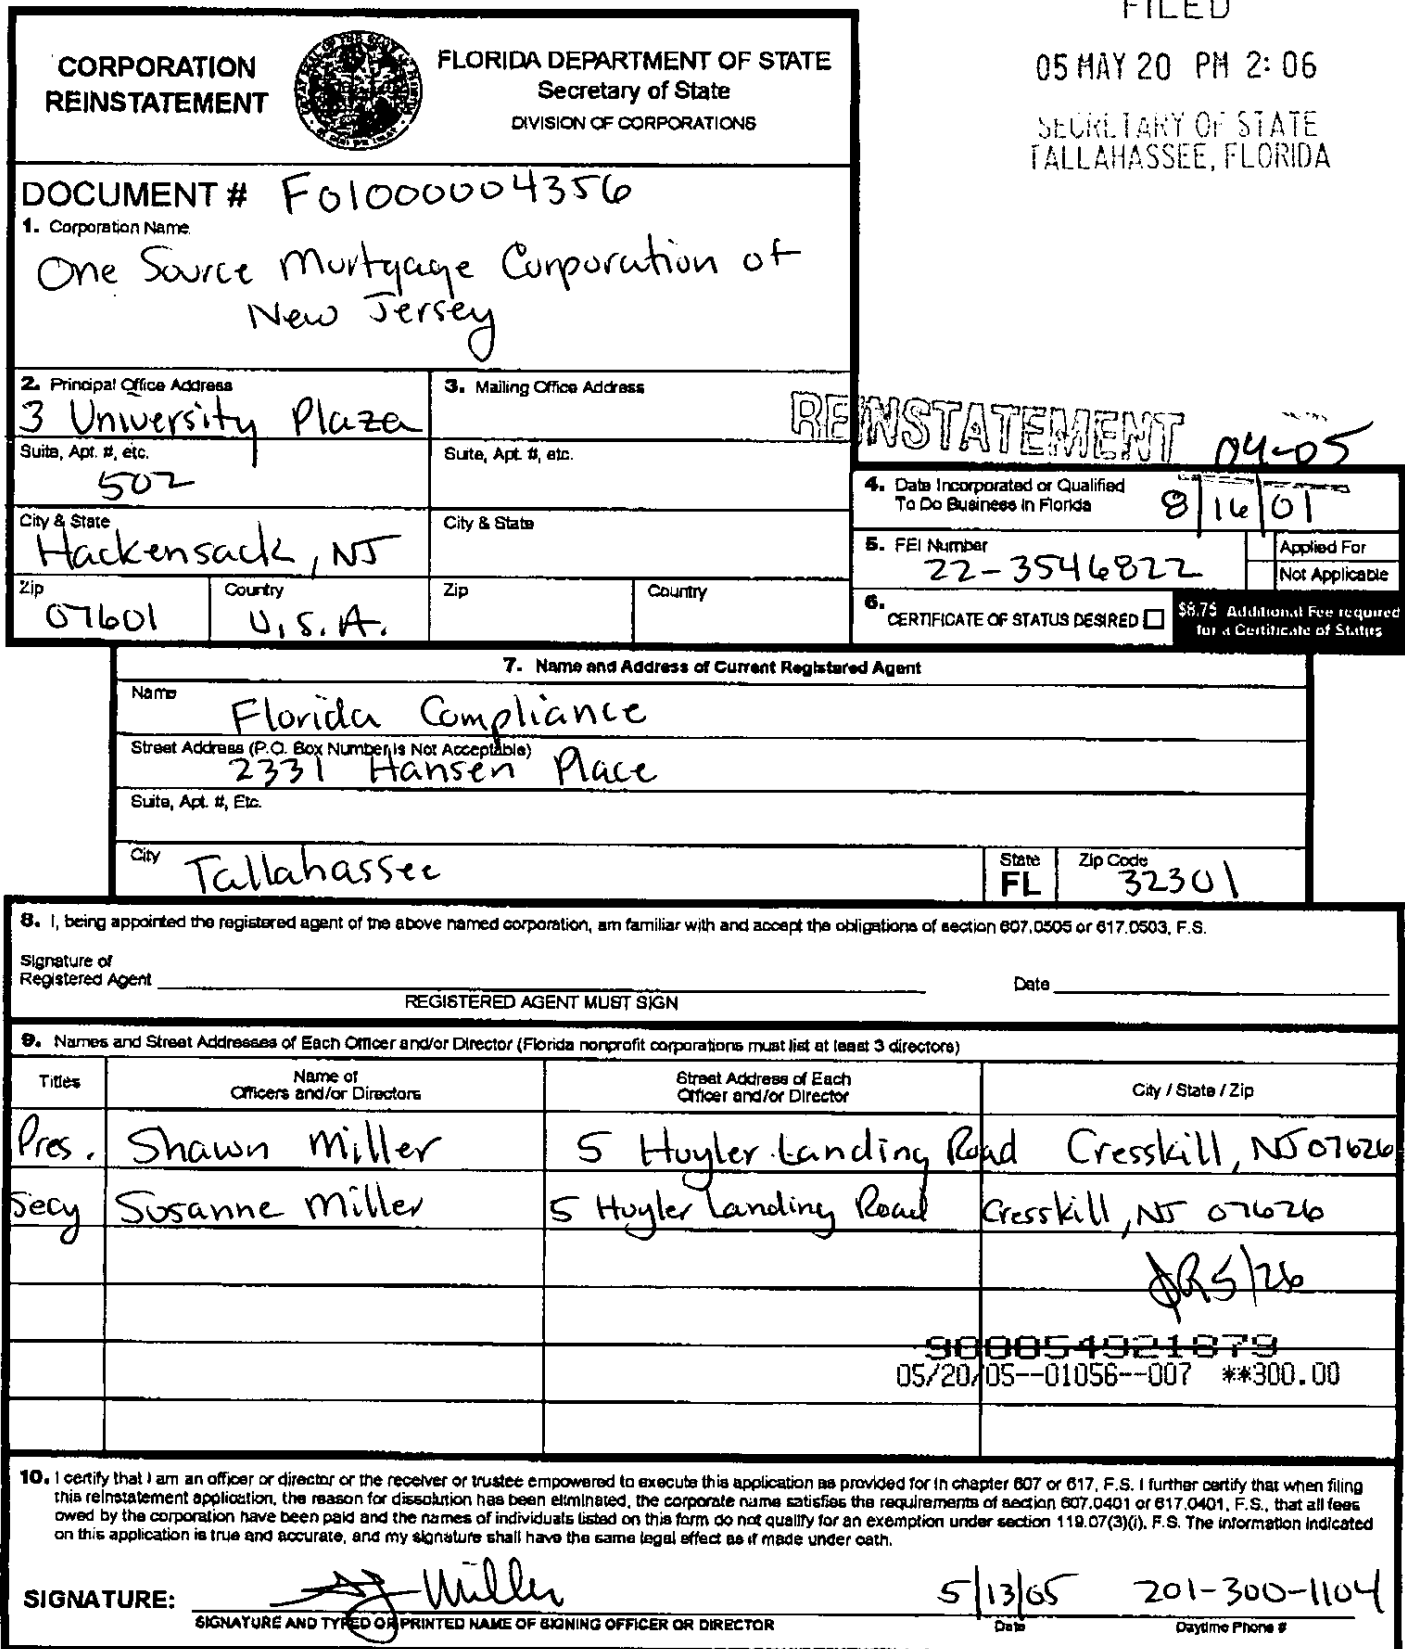 FILED
05 MAY 20 PM 2:06
SECRETARY OF STATE
TALLAHASSEE, FLORIDA
CORPORATION
REINSTATEMENT
FLORIDA DEPARTMENT OF STATE
Secretary of State
DIVISION OF CORPORATIONS
DOCUMENT # F01000004356
1. Corporation Name
One Source Mortgage Corporation of
New Jersey
2. Principal Office Address
3 University Plaza
3. Mailing Office Address
REINSTATEMENT 04-05
Suite, Apt. #, etc.
502
Suite, Apt. #, etc.
City & State
Hackensack, NJ
City & State
Zip
07601
Country
U.S.A.
Zip
Country
4. Date Incorporated or Qualified
To Do Business in Florida
8/16/01
5. FEI Number
22-3546822
Applied For
Not Applicable
6. CERTIFICATE OF STATUS DESIRED
$8.75 Additional Fee required
for a Certificate of Status
7. Name and Address of Current Registered Agent
Name
Florida Compliance
Street Address (P.O. Box Number is Not Acceptable)
2331 Hansen Place
Suite, Apt. #, Etc.
City
Tallahassee
State
FL
Zip Code
32301
8. I, being appointed the registered agent of the above named corporation, am familiar with and accept the obligations of section 607.0505 or 617.0503, F.S.
Signature of
Registered Agent
Date
REGISTERED AGENT MUST SIGN
9. Names and Street Addresses of Each Officer and/or Director (Florida nonprofit corporations must list at least 3 directors)
Titles
Name of
Officers and/or Directors
Street Address of Each
Officer and/or Director
City / State / Zip
Pres. Shawn Miller 5 Huyler Landing Road Cresskill, NJ 07626
Secy Susanne Miller 5 Huyler Landing Road Cresskill, NJ 07626
5/26
900054921879
05/20/05--01056--007 **300.00
10. I certify that I am an officer or director or the receiver or trustee empowered to execute this application as provided for in chapter 607 or 617, F.S. I further certify that when filing
this reinstatement application, the reason for dissolution has been eliminated, the corporate name satisfies the requirements of section 607.0401 or 617.0401, F.S., that all fees
owed by the corporation have been paid and the names of individuals listed on this form do not qualify for an exemption under section 119.07(3)(i), F.S. The information indicated
on this application is true and accurate, and my signature shall have the same legal effect as if made under oath.
SIGNATURE: Miller 5/13/05 201-300-1104
SIGNATURE AND TYPED OR PRINTED NAME OF SIGNING OFFICER OR DIRECTOR
Date
Daytime Phone #